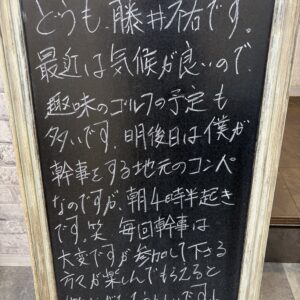 どうも、藤井祐です。
最近は気候が良いので、
趣味のゴルフの予定も
多いです。明後日は僕が
幹事をする地元のコンペ
なのですが、朝4時半起き
です。笑 毎回幹事は
大変ですが参加して下さる
方々が楽しんでもらえると